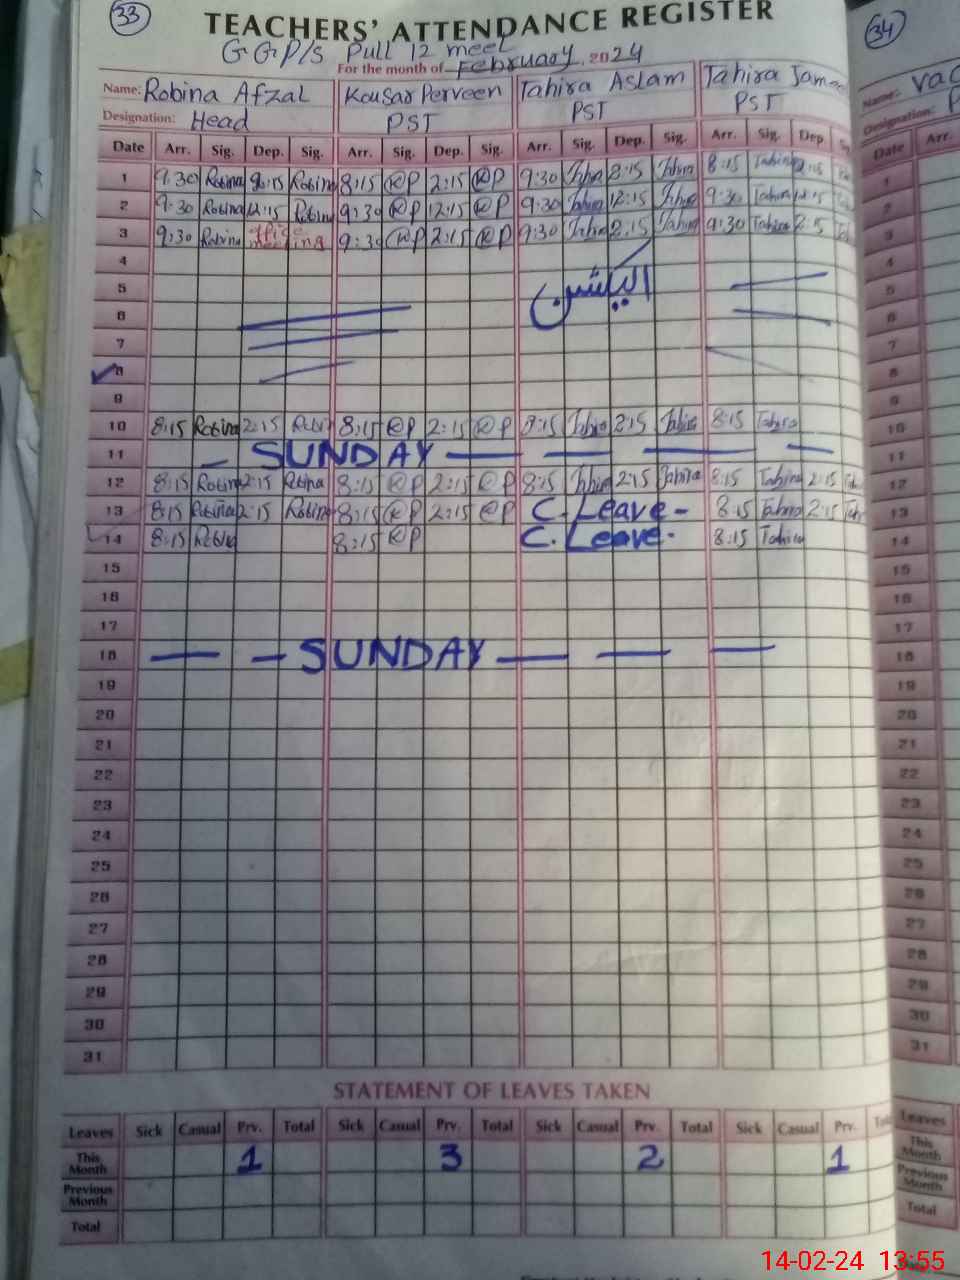 33
TEACHERS' ATTENDANCE REGISTER
34
G.G.P/S Pull 12 meel
For the month of February, 2024
Name: Robina Afzal Kousar Perveen Tahira Aslam Tahira
Designation: Head PST PST PST
Date Arr. Sig. Dep. Sig. Arr. Sig. Dep. Sig. Arr. Sig. Dep. Sig. Arr. Sig. Dep
1 9:30 Robina Robina 8:15 @P 2:15 @P 9:30 Tahira 2:15 Tahira 8:15 Tahira 2:15
2 9:30 Robina 12:15 Robina 9:30 @P 12:15 @P 9:30 Tahira 12:15 Tahira 9:30 Tahira 12:15
3 9:30 Robina office meeting 9:30 @P 2:15 @P 9:30 Tahira 2:15 Tahira 9:30 Tahira 2:15
4
5 الیکشن
6
7
8
9
10 8:15 Robina 2:15 Robina 8:15 @P 2:15 @P 8:15 Tahira 2:15 Tahira 8:15 Tahira
11 SUNDAY
12 8:15 Robina 2:15 Robina 8:15 @P 2:15 @P 8:15 Tahira 2:15 Tahira 8:15 Tahira 2:15
13 8:15 Robina 2:15 Robina 8:15 @P 2:15 @P C. Leave - 8:15 Tahira 2:15
14 8:15 Robina 8:15 @P C. Leave. 8:15 Tahira
15
16
17
18 SUNDAY
19
20
21
22
23
24
25
26
27
28
29
30
31
STATEMENT OF LEAVES TAKEN
Leaves Sick Casual Prv. Total Sick Casual Prv. Total Sick Casual Prv. Total Sick Casual Prv.
This Month 1 3 2 1
Previous Month
Total
Name:
Designation:
Date Arr.
1
2
3
4
5
6
7
8
9
10
11
12
13
14
15
16
17
18
19
20
21
22
23
24
25
26
27
28
29
30
31
Leaves
This Month
Previous Month
Total
14-02-24 13:55